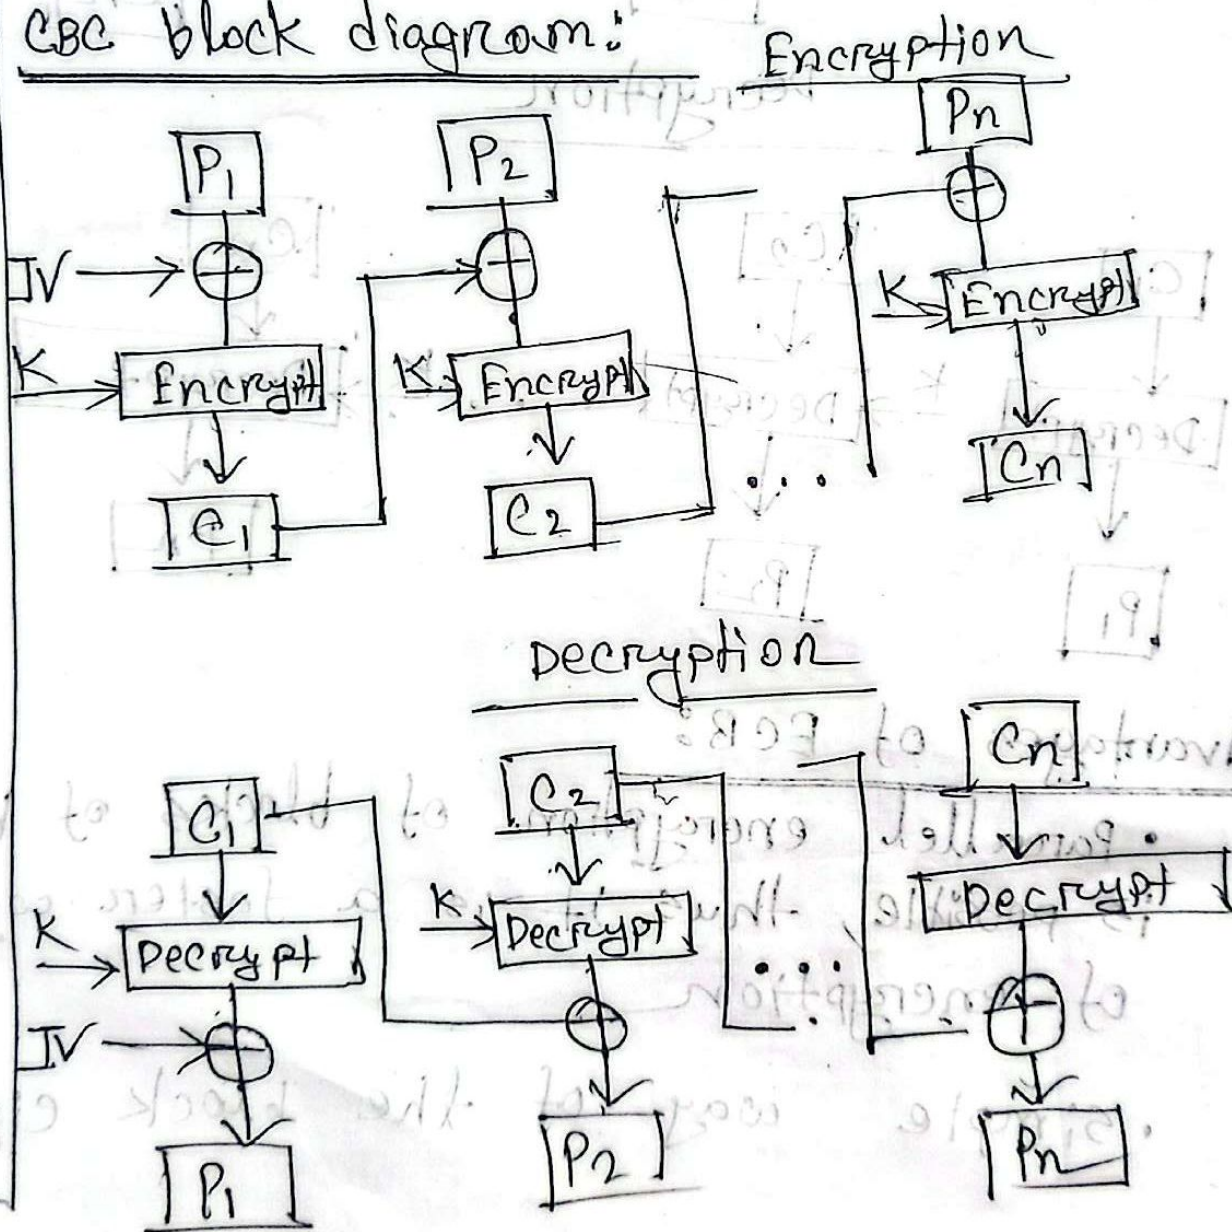 CBC block diagram:
Encryption
P1 P2 Pn
IV
K Encrypt K Encrypt K Encrypt
C1 C2 ... Cn
Decryption
C1 C2 Cn
K Decrypt K Decrypt ... Decrypt
IV
P1 P2 Pn